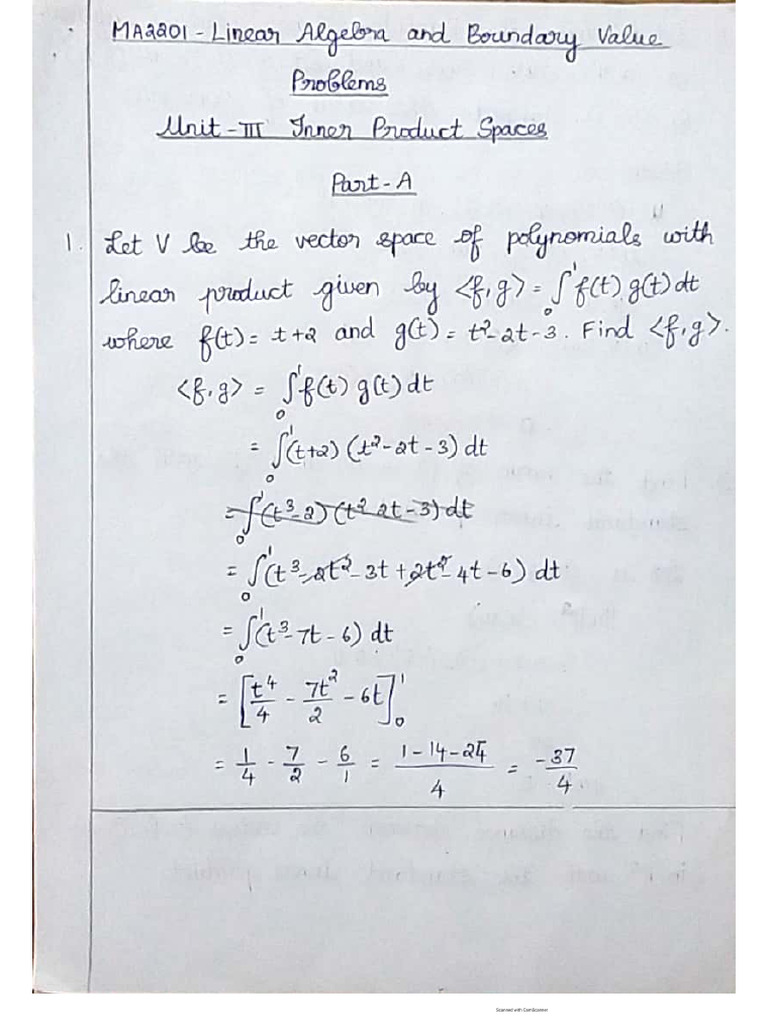 MA2201 - Linear Algebra and Boundary Value
Problems
Unit - III Inner Product Spaces
Part - A
1. Let V be the vector space of polynomials with
linear product given by <f,g> = ∫₀¹ f(t) g(t) dt
where f(t) = t+2 and g(t) = t²-2t-3. Find <f,g>.
<f,g> = ∫₀¹ f(t) g(t) dt
= ∫₀¹ (t+2) (t²-2t-3) dt
= ∫₀¹ (t³-2) (t² 2t-3) dt
= ∫₀¹ (t³-2t²-3t+2t²-4t-6) dt
= ∫₀¹ (t³-7t-6) dt
= [t⁴/4 - 7t²/2 - 6t]₀¹
= 1/4 - 7/2 - 6/1 = (1-14-24)/4 = -37/4
Scanned with CamScanner